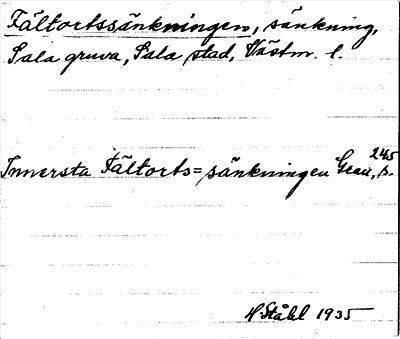 Fältortssänkningen, sänkning,
Sala gruva, Sala stad, Västm. l.
Innersta Fältorts=sänkningen Gran, s. 245
H Ståhl 1935